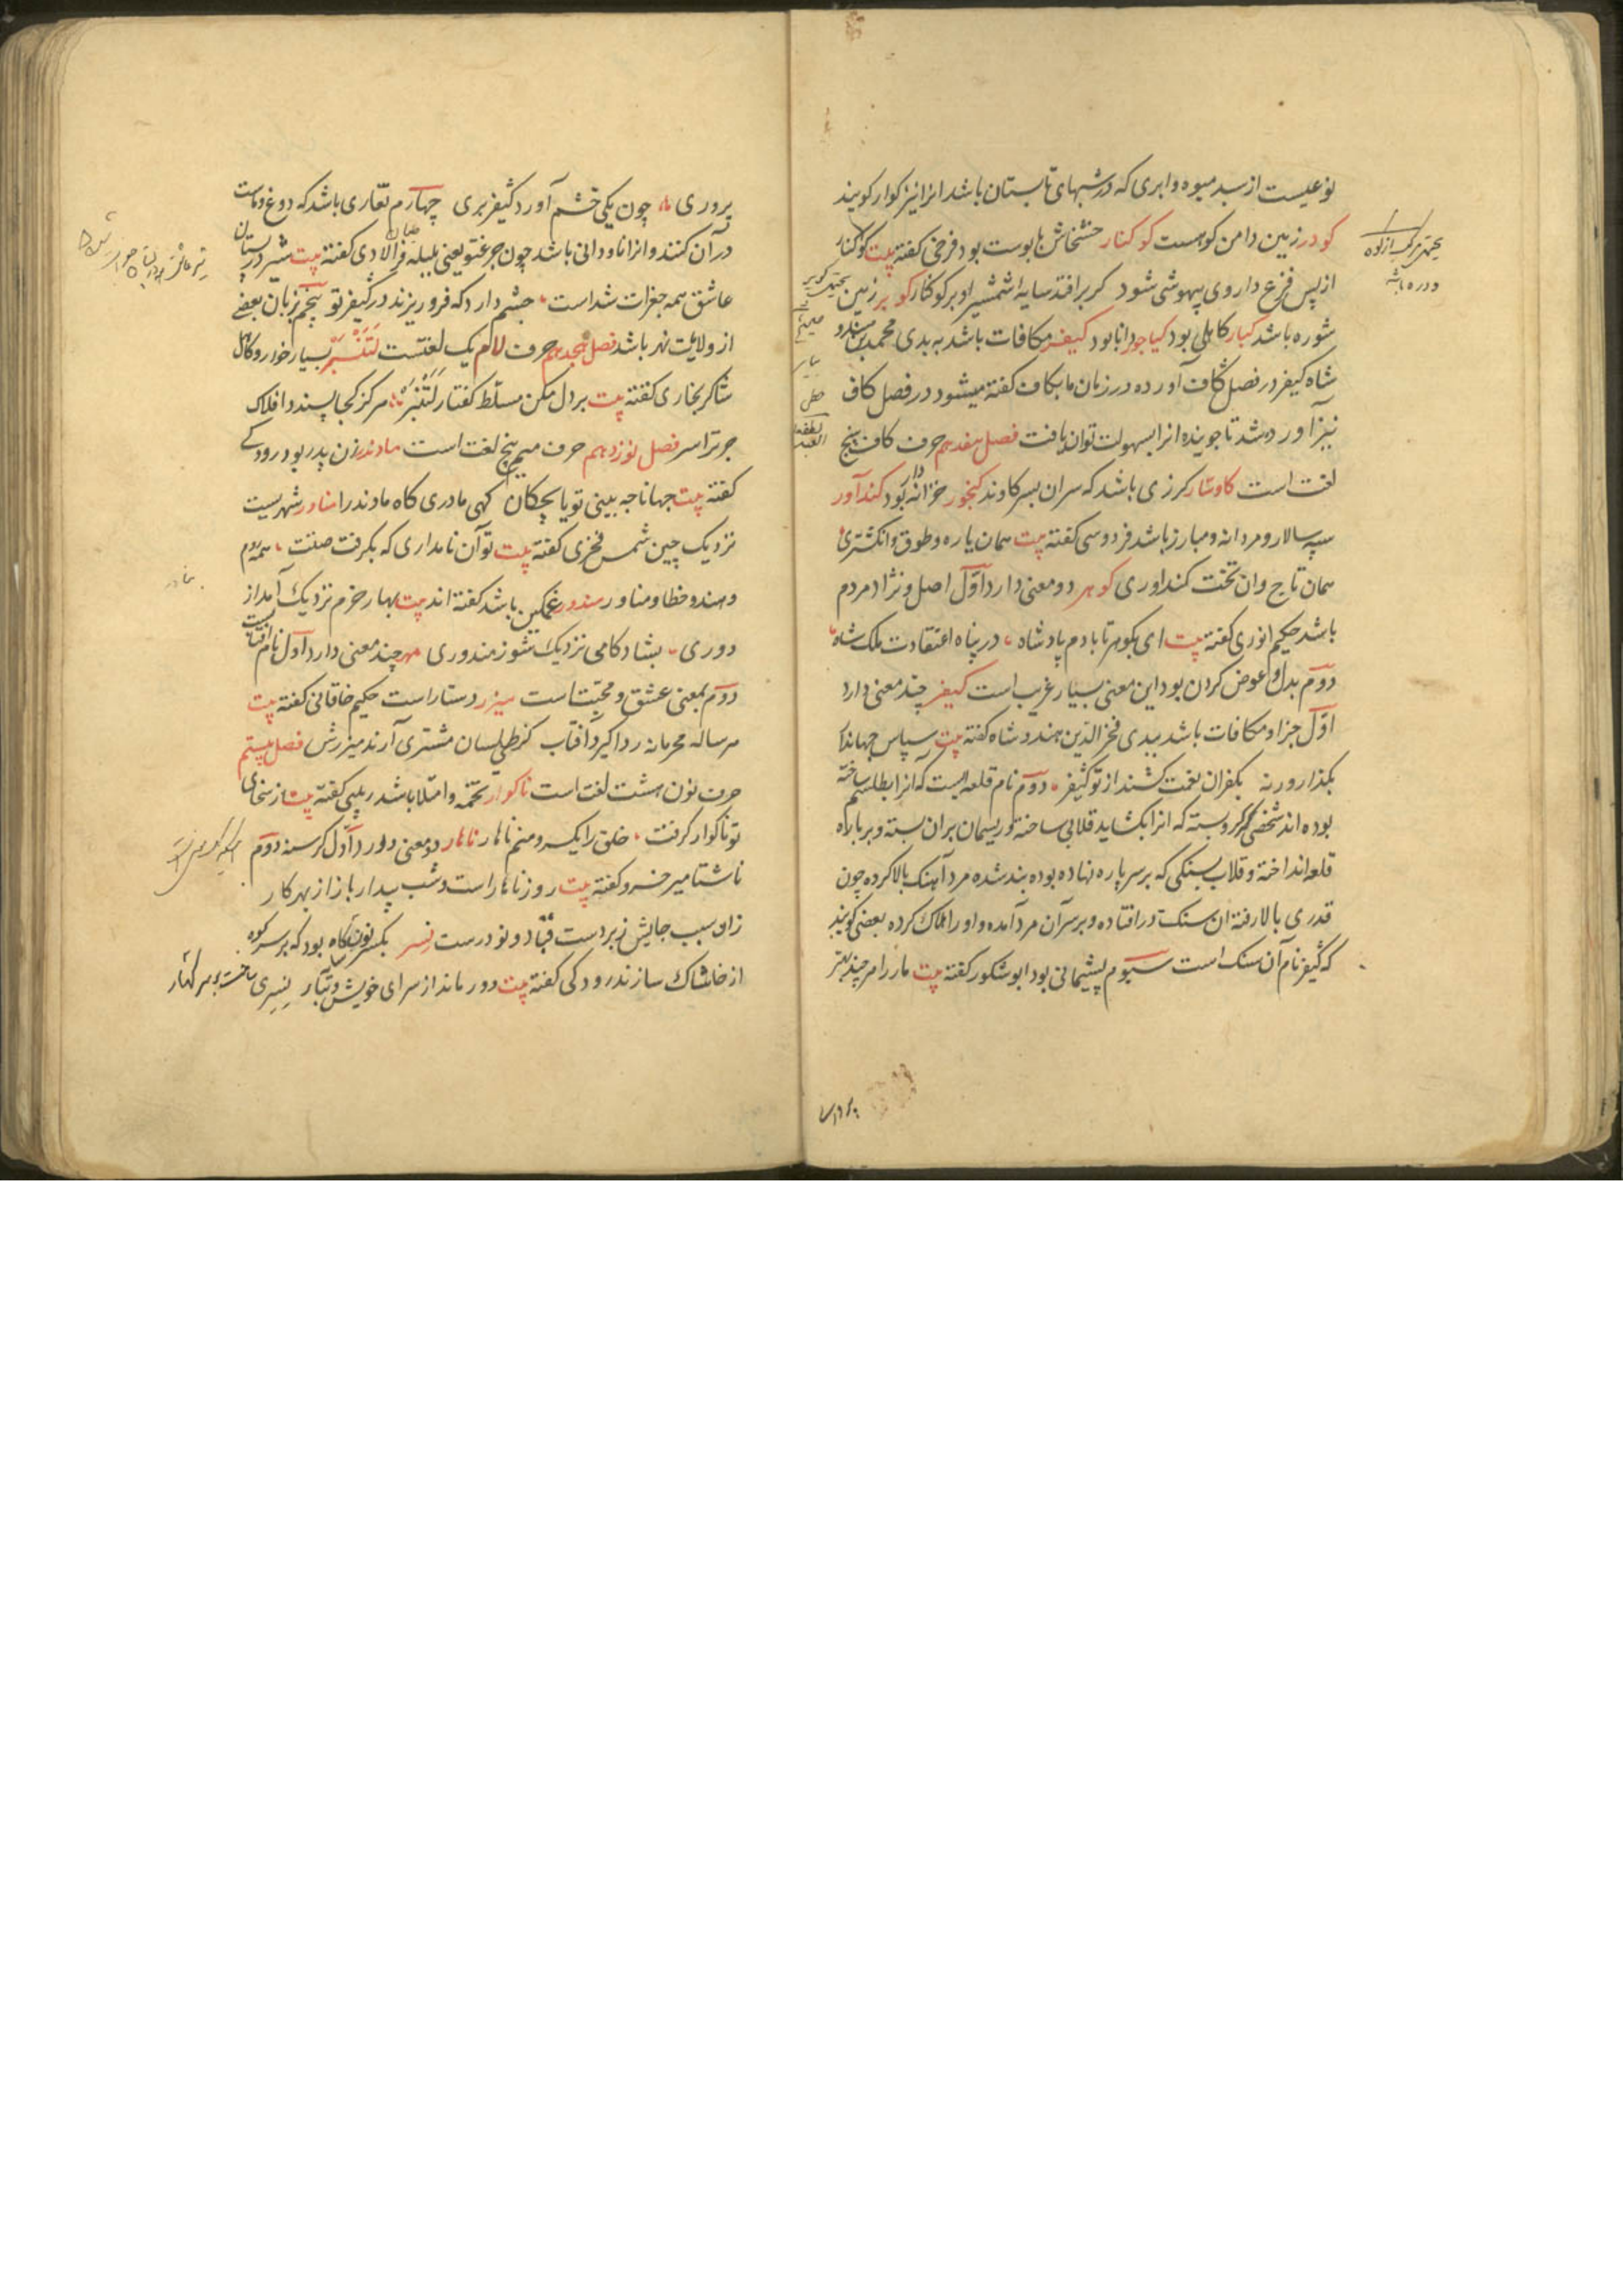 نوعیست از سبد میوه و ابری که در شبهای تابستان باشد انرا نیز کوار کویند
کودر زمین دامن کوهست کوکنار خشخاش با پوست بود فرخی کفته بیت کوکنار
از پس فزع داروی بیهوشی شود کر برافتد سایه شمشیر او بر کوکنار کویر زمین
شوره باشد کیار کاهلی بود کیاجور دانا بود کیفر مکافات باشد به بدی محمد بن هندو
شاه کیفر در فصل کاف آورده در زبان ما بکاف کفته میشود در فصل کاف
نیز آورده شد تا جوینده انرا بسهولت تواند یافت فصل هفدهم حرف کاف پنج
لغت است کاوسار کرزی باشد که سران بسر کاو ماند کنجور خزانه دار بود کندآور
سپه سالار و مردانه و مبارز باشد فردوسی کفته بیت همان یاره و طوق و انکشتری
همان تاج وان تخت کنداوری کوهر دو معنی دارد اوّل اصل و نژاد مردم
باشد حکیم انوری کفته بیت ای بکوهر تا بادم پادشاه در پناه اعتقادت ملک شاه
دوم بدل و عوض کردن بود این معنی بسیار غریب است کیفر چند معنی دارد
اوّل جزا و مکافات باشد ببدی فخر الدین هندوشاه کفته بیت سپاس جهاندا
بکذار ورنه بکفران نعمت کشند از تو کیفر دوم نام قلعه ایست که انرا بطلسم ساخته
بوده اند شخصی کمر کرو بسته که انرا بکشاید قلابی ساخته و ریسمان بران بسته و بر باره
قلعه انداخته و قلاب بسنکی که بر سر باره نهاده بوده بند شده مرد آهنک بالا کرده چون
قدری بالا رفته ان سنک در افتاده و بر سر آن مرد آمده و او را هلاک کرده بعضی کویند
که کیفر نام آن سنک است سیوم پشیمانی بود ابوشکور کفته بیت مار را هر چند بهتر
پروری چون یکی خشم آورد کیفر بری چهارم تغاری باشد که دوغ و ماست
در آن کنند و انرا ناودانی باشد چون جرغتو یعنی بلبله فرالادی کفته بیت شیر در پستان
عاشق همه جغرات شد است چشم دارد که فرو ریزند در کیفر تو پنجم بزبان بعضی
از ولایت نهر باشد فصل هجدهم حرف لام یک لغتست لتنبر بسیار خوار و کاهل
شاکر بخاری کفته بیت بر دل مکن مسلط کفتار لتنبر هرکز کجا پسندد افلاک
جز ترا سر فصل نوزدهم حرف میم پنج لغت است مادندر زن پدر بود رودکی
کفته بیت جهانا چه بینی تو با بچکان کهی مادری کاه مادندرا مناور شهریست
نزدیک چین شمس فخری کفته بیت تو آن نامداری که بکرفت صیتت همه روم
و هند و خطا و مناور مندور غمکین باشد کفته اند بیت بهار خرم نزدیک آمد از
دوری بشاد کامی نزدیک شو نه مندوری مهر چند معنی دارد اوّل نام آفتابست
دوم بمعنی عشق و محبّت است میزر دستار است حکیم خاقانی کفته بیت
هر ساله محرمانه ردا کیرد آفتاب کز طیلسان مشتری آرند میزرش فصل بیستم
حرف نون هشت لغت است ناکوار تخمه و امتلا باشد ریبی کفته بیت از سخای
تو ناکوار کرفت خلق را یکسر و منم ناهار ناهار دو معنی دارد اوّل کرسنه دوم
ناشتا میر خسرو کفته بیت روز ناهار است و شب بیدار باز از بهر کار
زان سبب جایش زبر دست قباد و نوذرست نسر بکسر نون کاه بود که بر سر کوه
از خاشاک سازند رودکی کفته بیت دور ماند از سرای خویش و تبار نسری ساخت بر سر کهسار